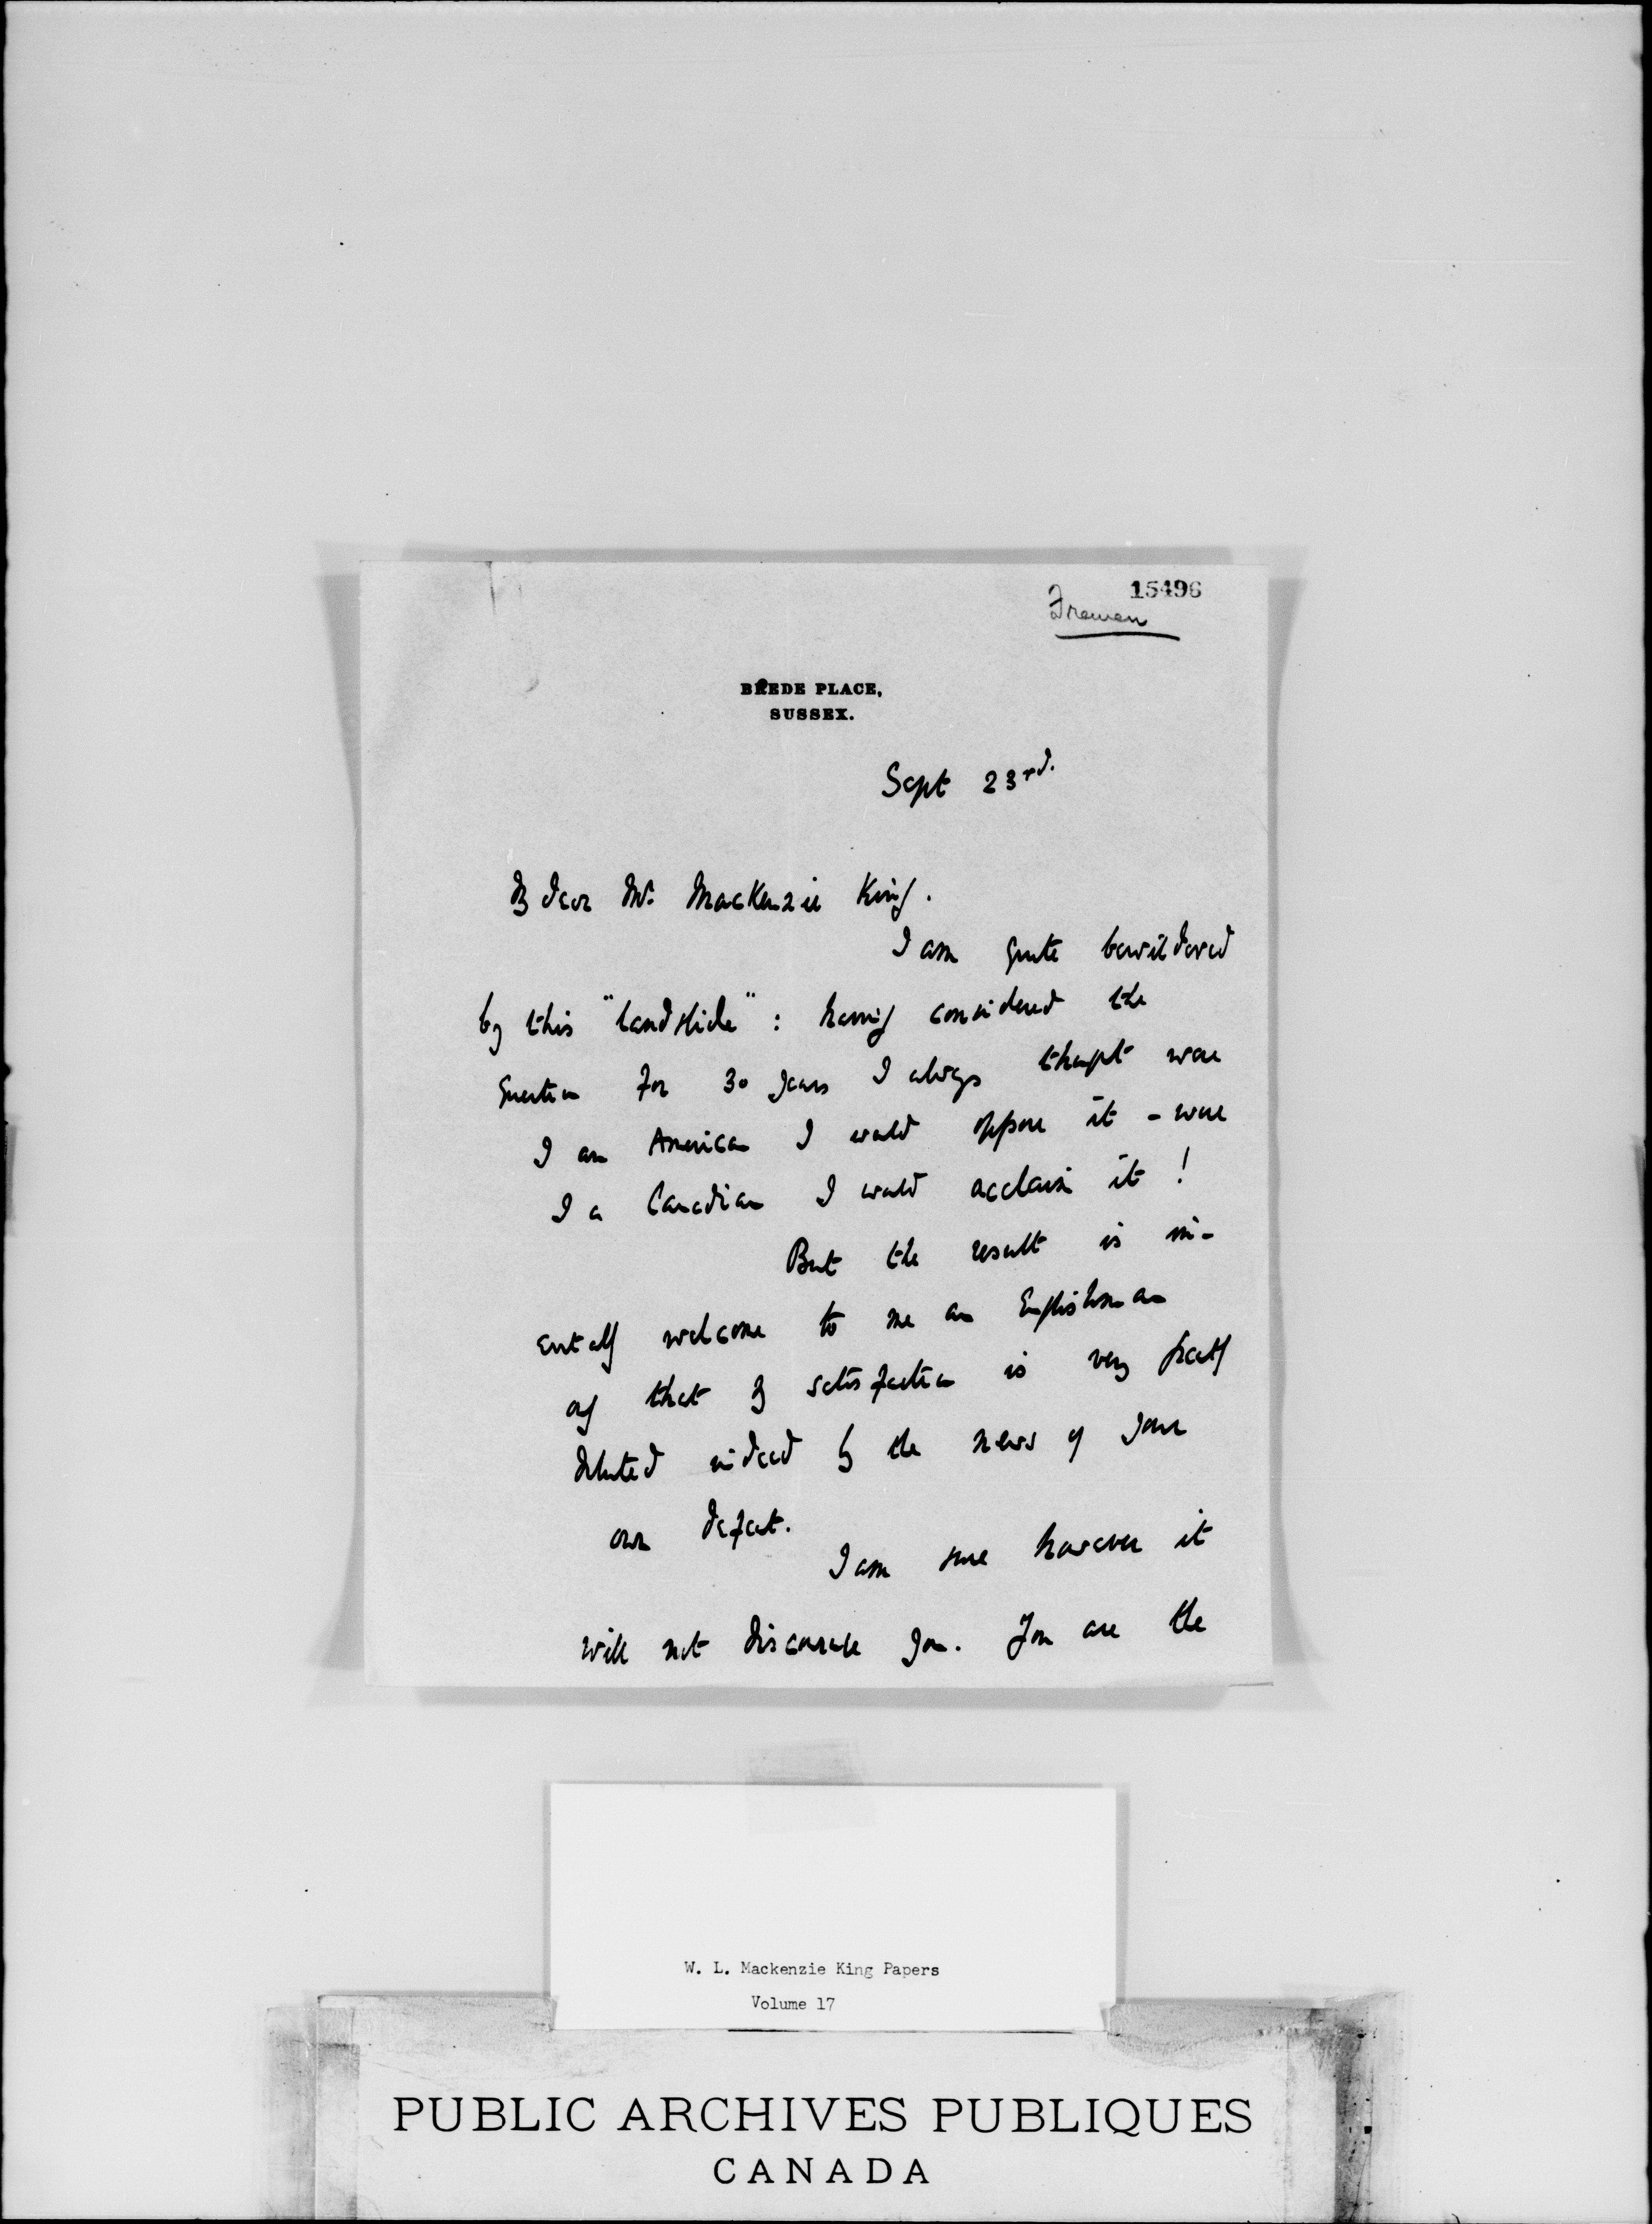 15496
Frewen
BREDE PLACE,
SUSSEX.
Sept 23rd.
My dear Mr. MacKenzie King.
I am quite bewildered
by this "landslide": having considered the
question for 30 years I always thought were
I an American I would oppose it - were
I a Canadian I would acclaim it!
But the result is in-
welcome to me an Englishman
only that my satisfaction is very greatly
diluted indeed by the news of your
own defeat.
I am sure however it
will not discourage you. You are the
W. L. Mackenzie King Papers
Volume 17
PUBLIC ARCHIVES PUBLIQUES
CANADA